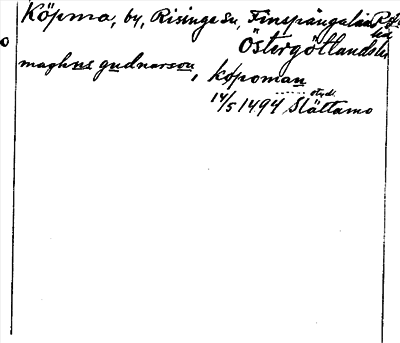 Köpma, by, Risinge sn, Finspångalän
Östergötlands
maghnus gudnarson, køpoman
otydl.
14/5 1494 Slättamo